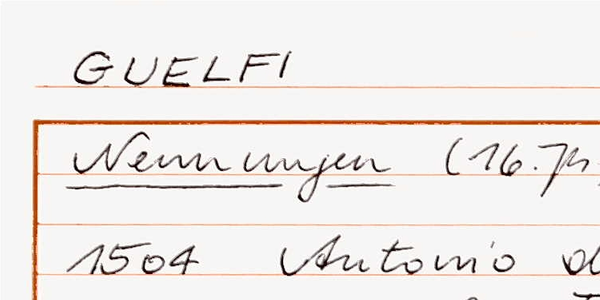 GUELFI
Nennungen (16. Jh.
1504 Antonio d